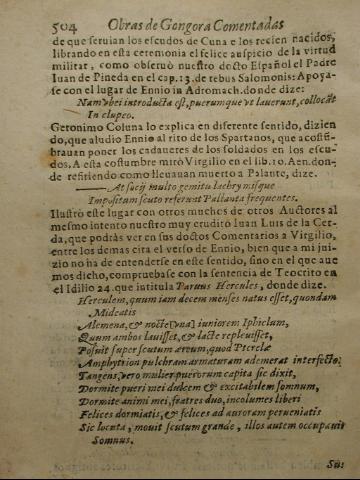 504 Obras de Gongora Comentadas
de que seruian los escudos de Cuna a los recien nacidos,
librando en esta ceremonia el felice auspicio de la virtud
militar, como obseruò nuestro docto Español el Padre
Iuan de Pineda en el cap. 13. de rebus Salomonis: Apoya-
se con el lugar de Ennio in Adromach. donde dize:
Nam vbei introducta est, puerumque vt lauerunt, collocãt
In clupeo.
Geronimo Coluna lo explica en diferente sentido, dizien
do, que aludio Ennio al rito de los Spartanos, que acostũ-
brauan poner los cadaueres de los soldados en los escu-
dos. A esta costumbre mirò Virgilio en el lib. 10. Aen. don-
de refitiendo como lleuauan muerto a Palante, dize.
—— At sacij multo gemitu lachrymisque
Impositam scuto referunt Pallanta frequentes.
Ilustrò este lugar con otros muchos de otros Auctores al
mesmo intento nuestro muy eruditó Iuan Luis de la Cer-
da, que podràs ver en sus doctos Comentarios a Virgilio,
entre los demas cita el verso de Ennio, bien que a mi jui-
zio no ha de entenderse en este sentido, sino en el que aue
mos dicho, compruebase con la sentencia de Teocrito en
el Idilio 24. que intitula Paruus Hercules, donde dize.
Herculem, quum iam decem menses natus esset, quondam
Mideatis
Alemena, & nocte vna iuniorem Iphiclum,
Quum ambos lauisset, & lacte repleuisset,
Posuit super scutum æreum, quod Pterelæ
Amphytrion pulchram armaturam ademerat interfecto.
Tangens, vero mulier puerorum capita sic dixit,
Dormite pueri mei dulcem & excitabilem somnum,
Dormite animi mei, fratres duo, incolumes liberi
Felices dormiatis, & felices ad auroram perueniatis
Sic locuta, mouit scutum grande, illos autem occupauit
Somnus.